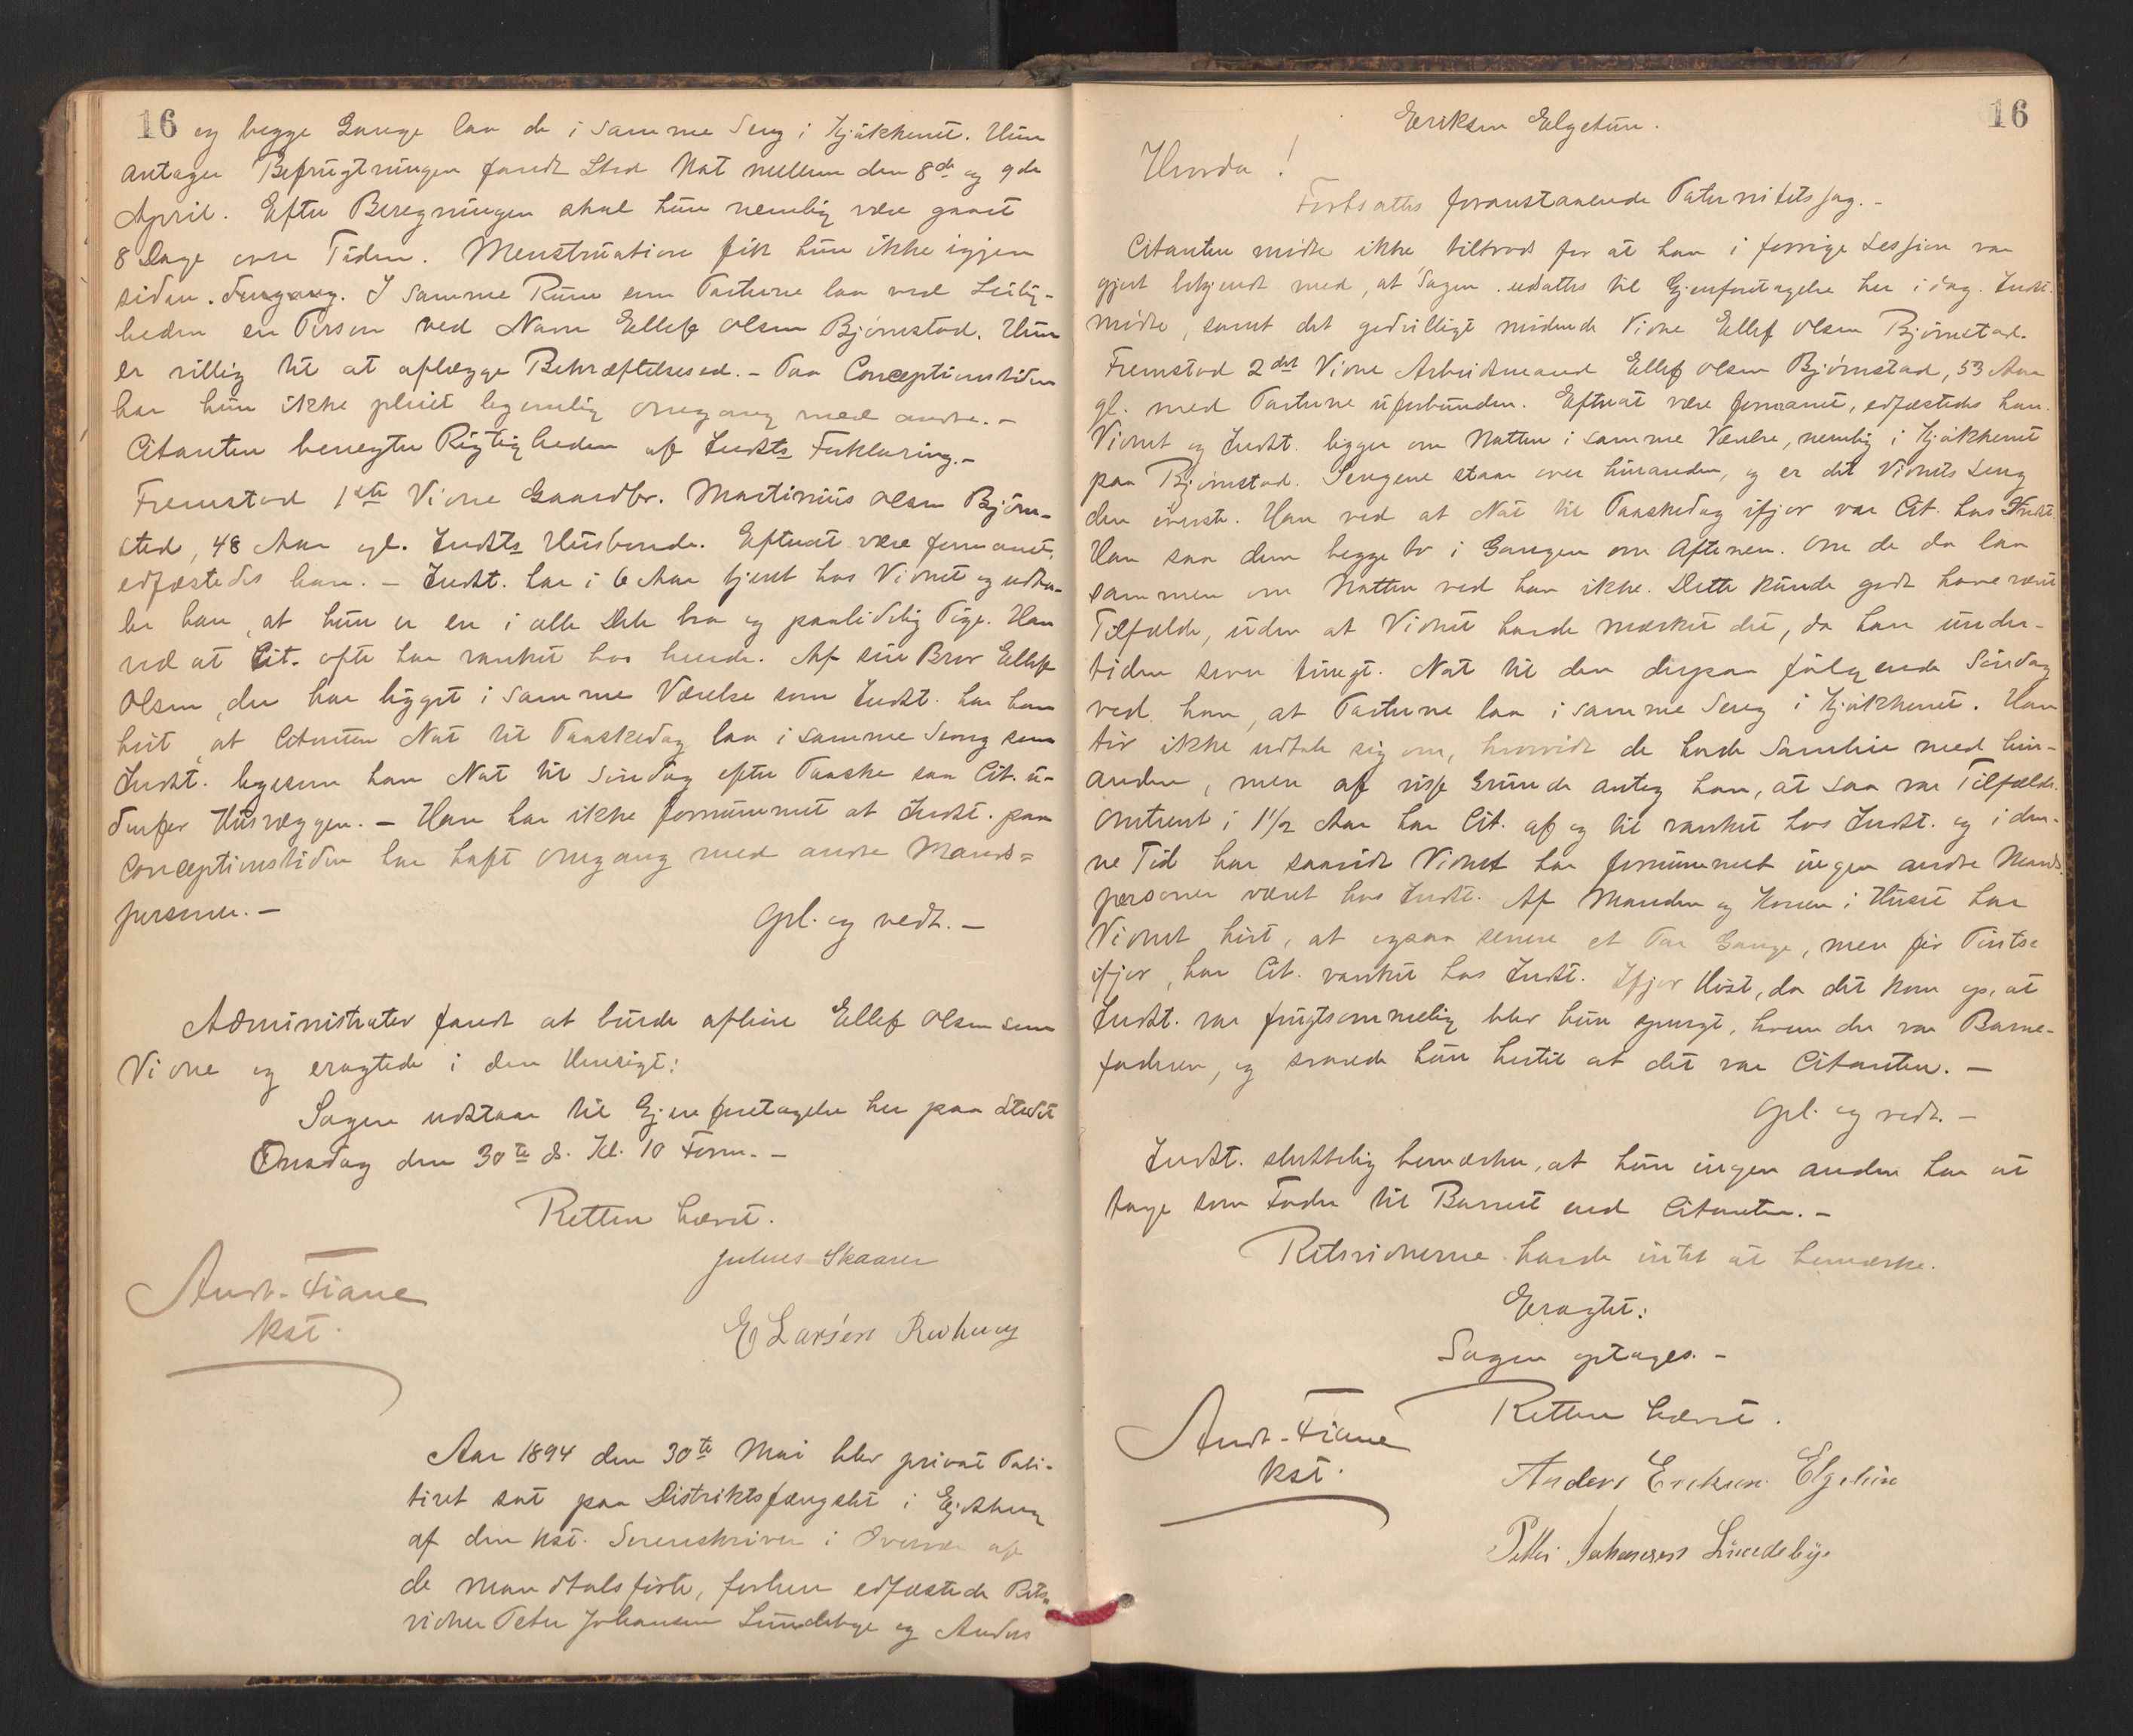 16 og begge Gange laa de i samme Seng i Kjøkkenet. Hun
antager Befrugtningen fandt Sted Nat mellem den 8de og 9de
April. Efter Beregningen skal hun nemlig være gaaet
8 Dage over Tiden. Menstruation fik hun ikke igjen
siden dengang. I samme Rum som Parterne laa ved Leilig-
heden en Person ved Navn Ellef Olsen Bjørnstad. Hun
er villig til at aflægge Bekræftelsesed. – Paa Conceptionstiden
har hun ikke pleiet legemlig Omgang med andre. –
Citanten benegter Rigtigheden af Indsts Forklaring. –
Fremstod 1ste Vidne Gaardbr. Martinius Olsen Bjørn-
stad, 48 Aar gl. Indsts Husbonde. Efterat være formanet,
edfæstedes han. – Indst. har i 6 Aar tjent hos Vidnet og udta-
ler han, at hun er en i alle Dele bra og paalidelig Pige. Han
ved at Cit. ofte har vanket hos hende. Af sin Bror Ellef
Olsen, der har ligget i samme Værelse som Indst. har han
hørt, at Citanten Nat til Paaskedag laa i samme Seng som
Indst. ligesom han Nat til Søndag efter Paaske saa Cit. u-
denfor Husvæggen. – Han har ikke fornummet at Indst. paa
Conceptionstiden har haft Omgang med andre Mands=
personer. –
Opl. og vedt. –
Administrator fandt at burde afhøre Ellef Olsen som
Vidne og eragtede i den Hensigt:
Sagen udstaar til Gjenforetagelse her paa Stedet
Onsdag den 30te ds. Kl. 10 Form. –
Retten hævet.
Julius Skaaren
Andr. Fiane
kst.
E Larsen
Aar 1894 den 30te Mai blev privat Poli-
tiret sat paa Distriktsfængslet i
af den kst. Sorenskriver i Overvær af
de mandtalsførte, forhen edfæstede Rets-
vidner Peter Johansen Lundebye og Anders
16
Eriksen Elgetun.
Hvorda!
Fortsattes foranstaaende Paternitetssag. –
Citanten mødte ikke tiltrods for at han i forrige Session var
gjort bekjendt med, at Sagen udsattes til Gjenforetagelse her i dag. Indst.
mødte, samt det godvilligt mødende Vidne Ellef Olsen Bjørnstad.
Fremstod 2det Vidne Arbeidsmand Ellef Olsen Bjørnstad, 53 Aar
gl. med Parterne uforbunden. Efterat være formanet, edfæstedes han.
Vidnet og Indst. ligger om Natten i samme Værelse, nemlig i Kjøkkenet
paa Bjørnstad. Sengene staar over hinanden, og er det Vidnets Seng
den øverste. Han ved at Nat til Paaskedag ifjor var Cit. hos Indst.
Han saa dem begge to i Gangen om Aftenen. Om de da laa
sammen om Natten ved han ikke. Dette kunde godt have været
Tilfælde, uden at Vidnet havde mærket det, da han under-
tiden sover tungt. Nat til den derpaa følgende Søndag
ved han, at Parterne laa i samme Seng i Kjøkkenet. Han
tør ikke udtale sig om, hvorvidt de havde Samleie med hin-
anden, men af visse Grunde antog han, at saa var Tilfældet.
Omtrent i 1½ Aar har Cit. af og til vanket hos Indst. og i den-
ne Tid har saavidt Vidnet har fornummet ingen andre Mands-
personer været hos Indst. Af Manden og Konen i Huset har
Vidnet hørt, at ogsaa senere et Par Gange, men før Pintse
ifjor, har Cit. vanket hos Indst. Ifjor Høst, da det kom op, at
Indst. var frugtsommelig blev hun spurgt, hvem der var Barne-
faderen, og svarede hun hertil at det var Citanten. –
Opl. og vedt. –
Indst. sluttelig bemærker, at hun ingen anden har at
tage som Fader til Barnet end Citanten. –
Retsvidnerne havde intet at bemærke.
Eragtet:
Sagen optages. –
Retten hævet.
Andr. Fiane
kst.
Anders Eriksen Elgetun
Petter Johansen Lundebye